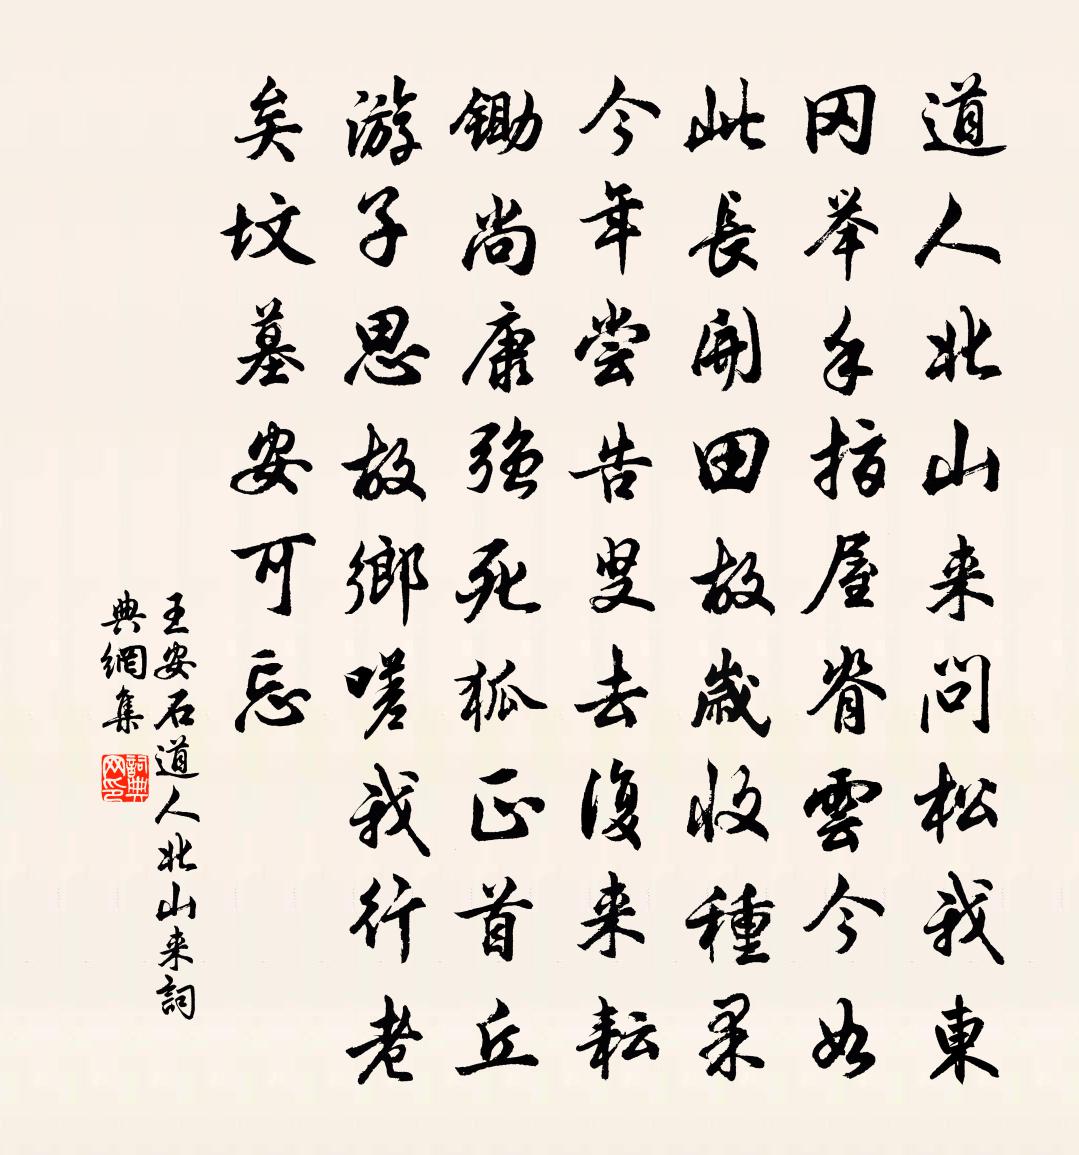 道人北山来問松我東
冈举手指屋脊雲今如
此長開田故歲收種果
今年嘗告叟去復来耘
鋤尚康强死狐正首丘
游子思故鄉嗟我行老
矣坟墓安可忘
王安石道人北山来詞
典網集
詞典
网印